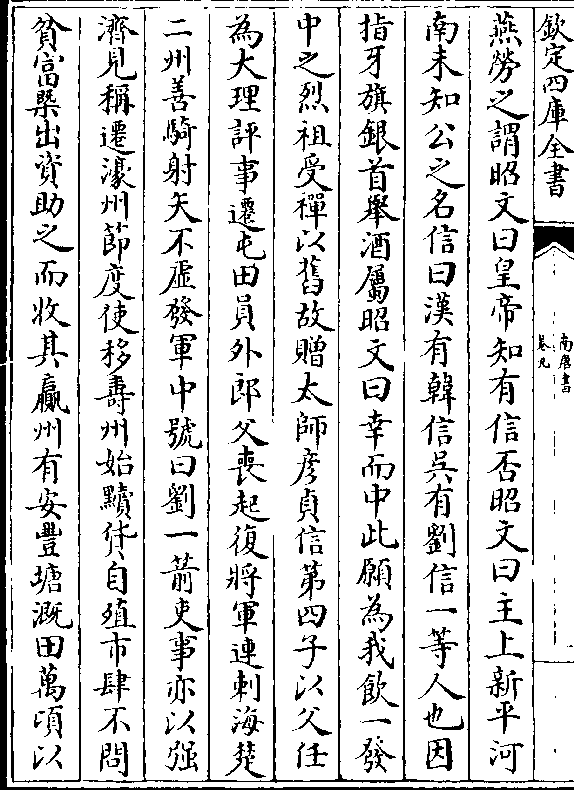 欽定四庫全書
南唐書
卷九
燕勞之謂昭文曰皇帝知有信否昭文曰主上新平河
南未知公之名信曰漢有韓信吳有劉信一等人也因
指牙旗銀首舉酒屬昭文曰幸而中此願為我飲一發
中之烈祖受禪以舊故贈太師彥貞信第四子以父任
為大理評事遷屯田員外郎父喪起復將軍連刺海楚
二州善騎射矢不虛發軍中號曰劉一箭吏事亦以强
濟見稱遷濠州節度使移壽州始黷貨自殖市肆不問
貧富槩出資助之而收其贏州有安豐塘溉田萬頃以